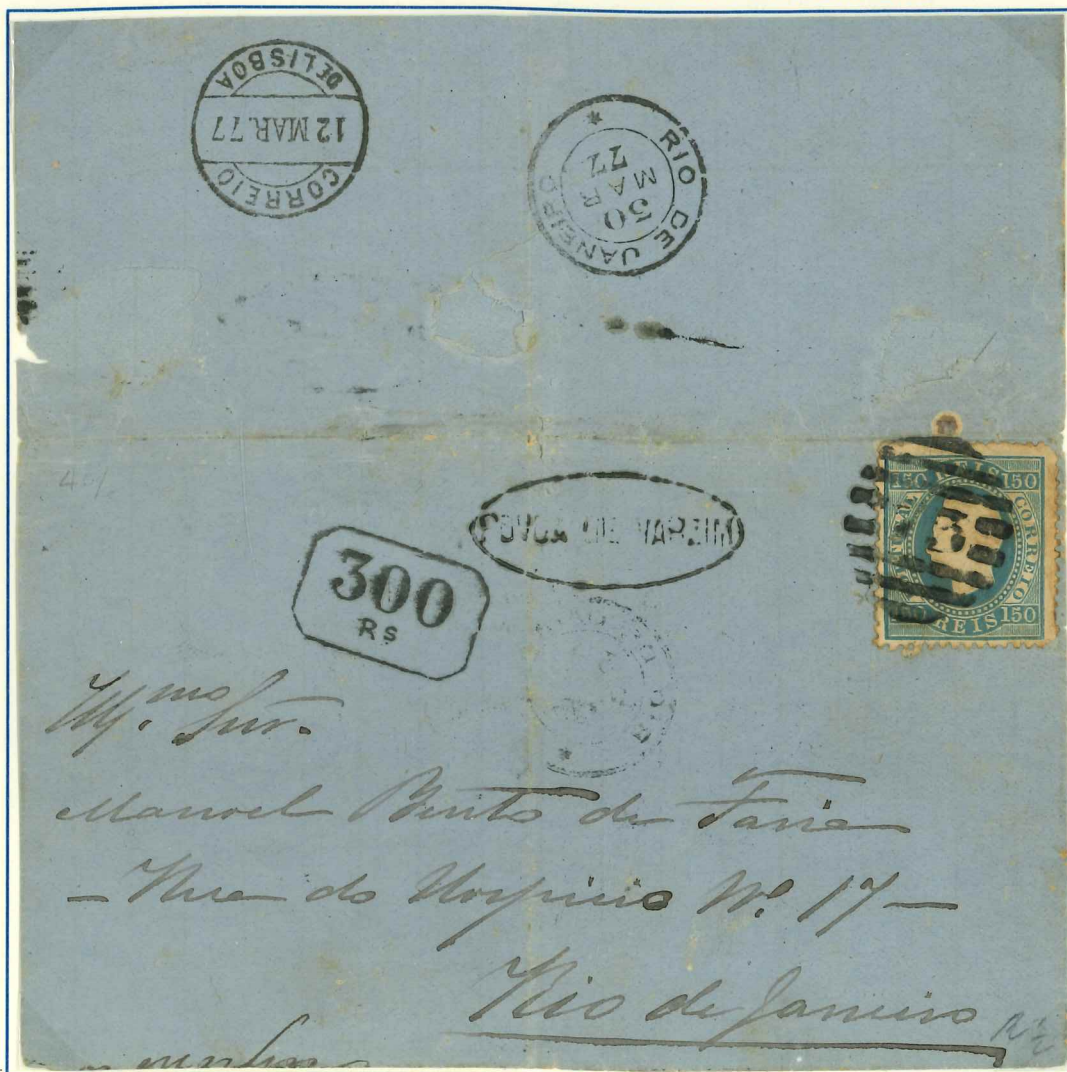 CORREIO
12 MAR. 77
DE LISBOA
RIO DE JANEIRO
30
MAR
77
POVOA DE VARZIM
300
RS
150 REIS 150
CORREIO
REIS 150
Ill.mo Snr.
Manoel Bento de Faria
- Rua do Hospicio Nº 17 -
Rio de Janeiro